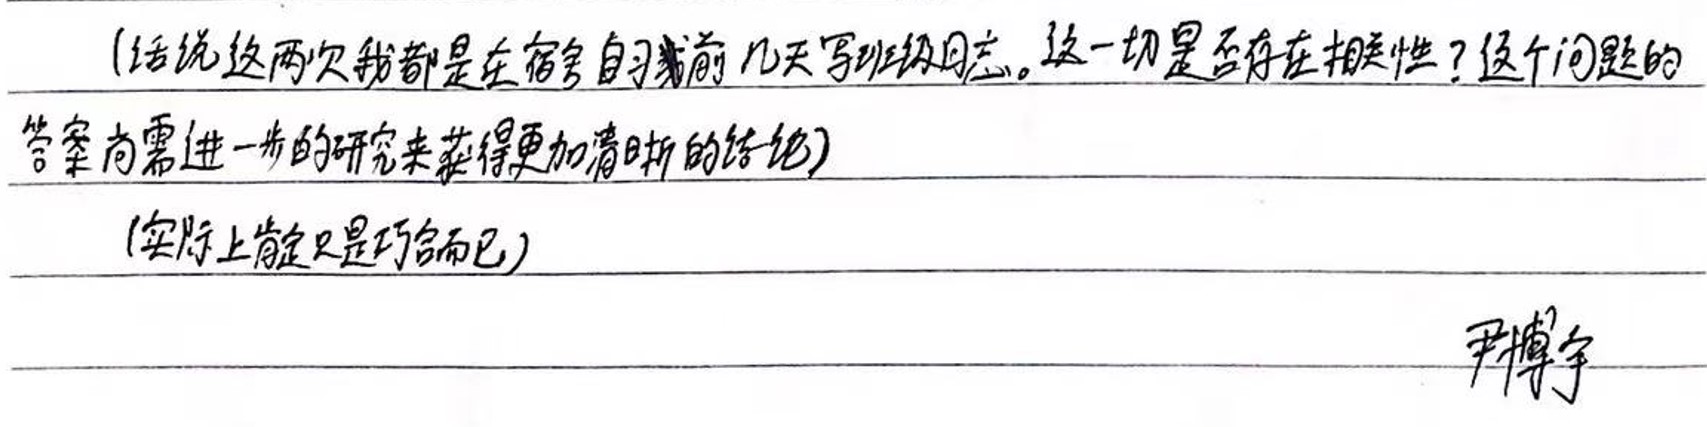 (话说这两次我都是在宿舍自习前几天写班级日志。这一切是否存在相关性？这个问题的
答案尚需进一步的研究来获得更加清晰的结论)
(实际上肯定只是巧合而已)
尹博宇